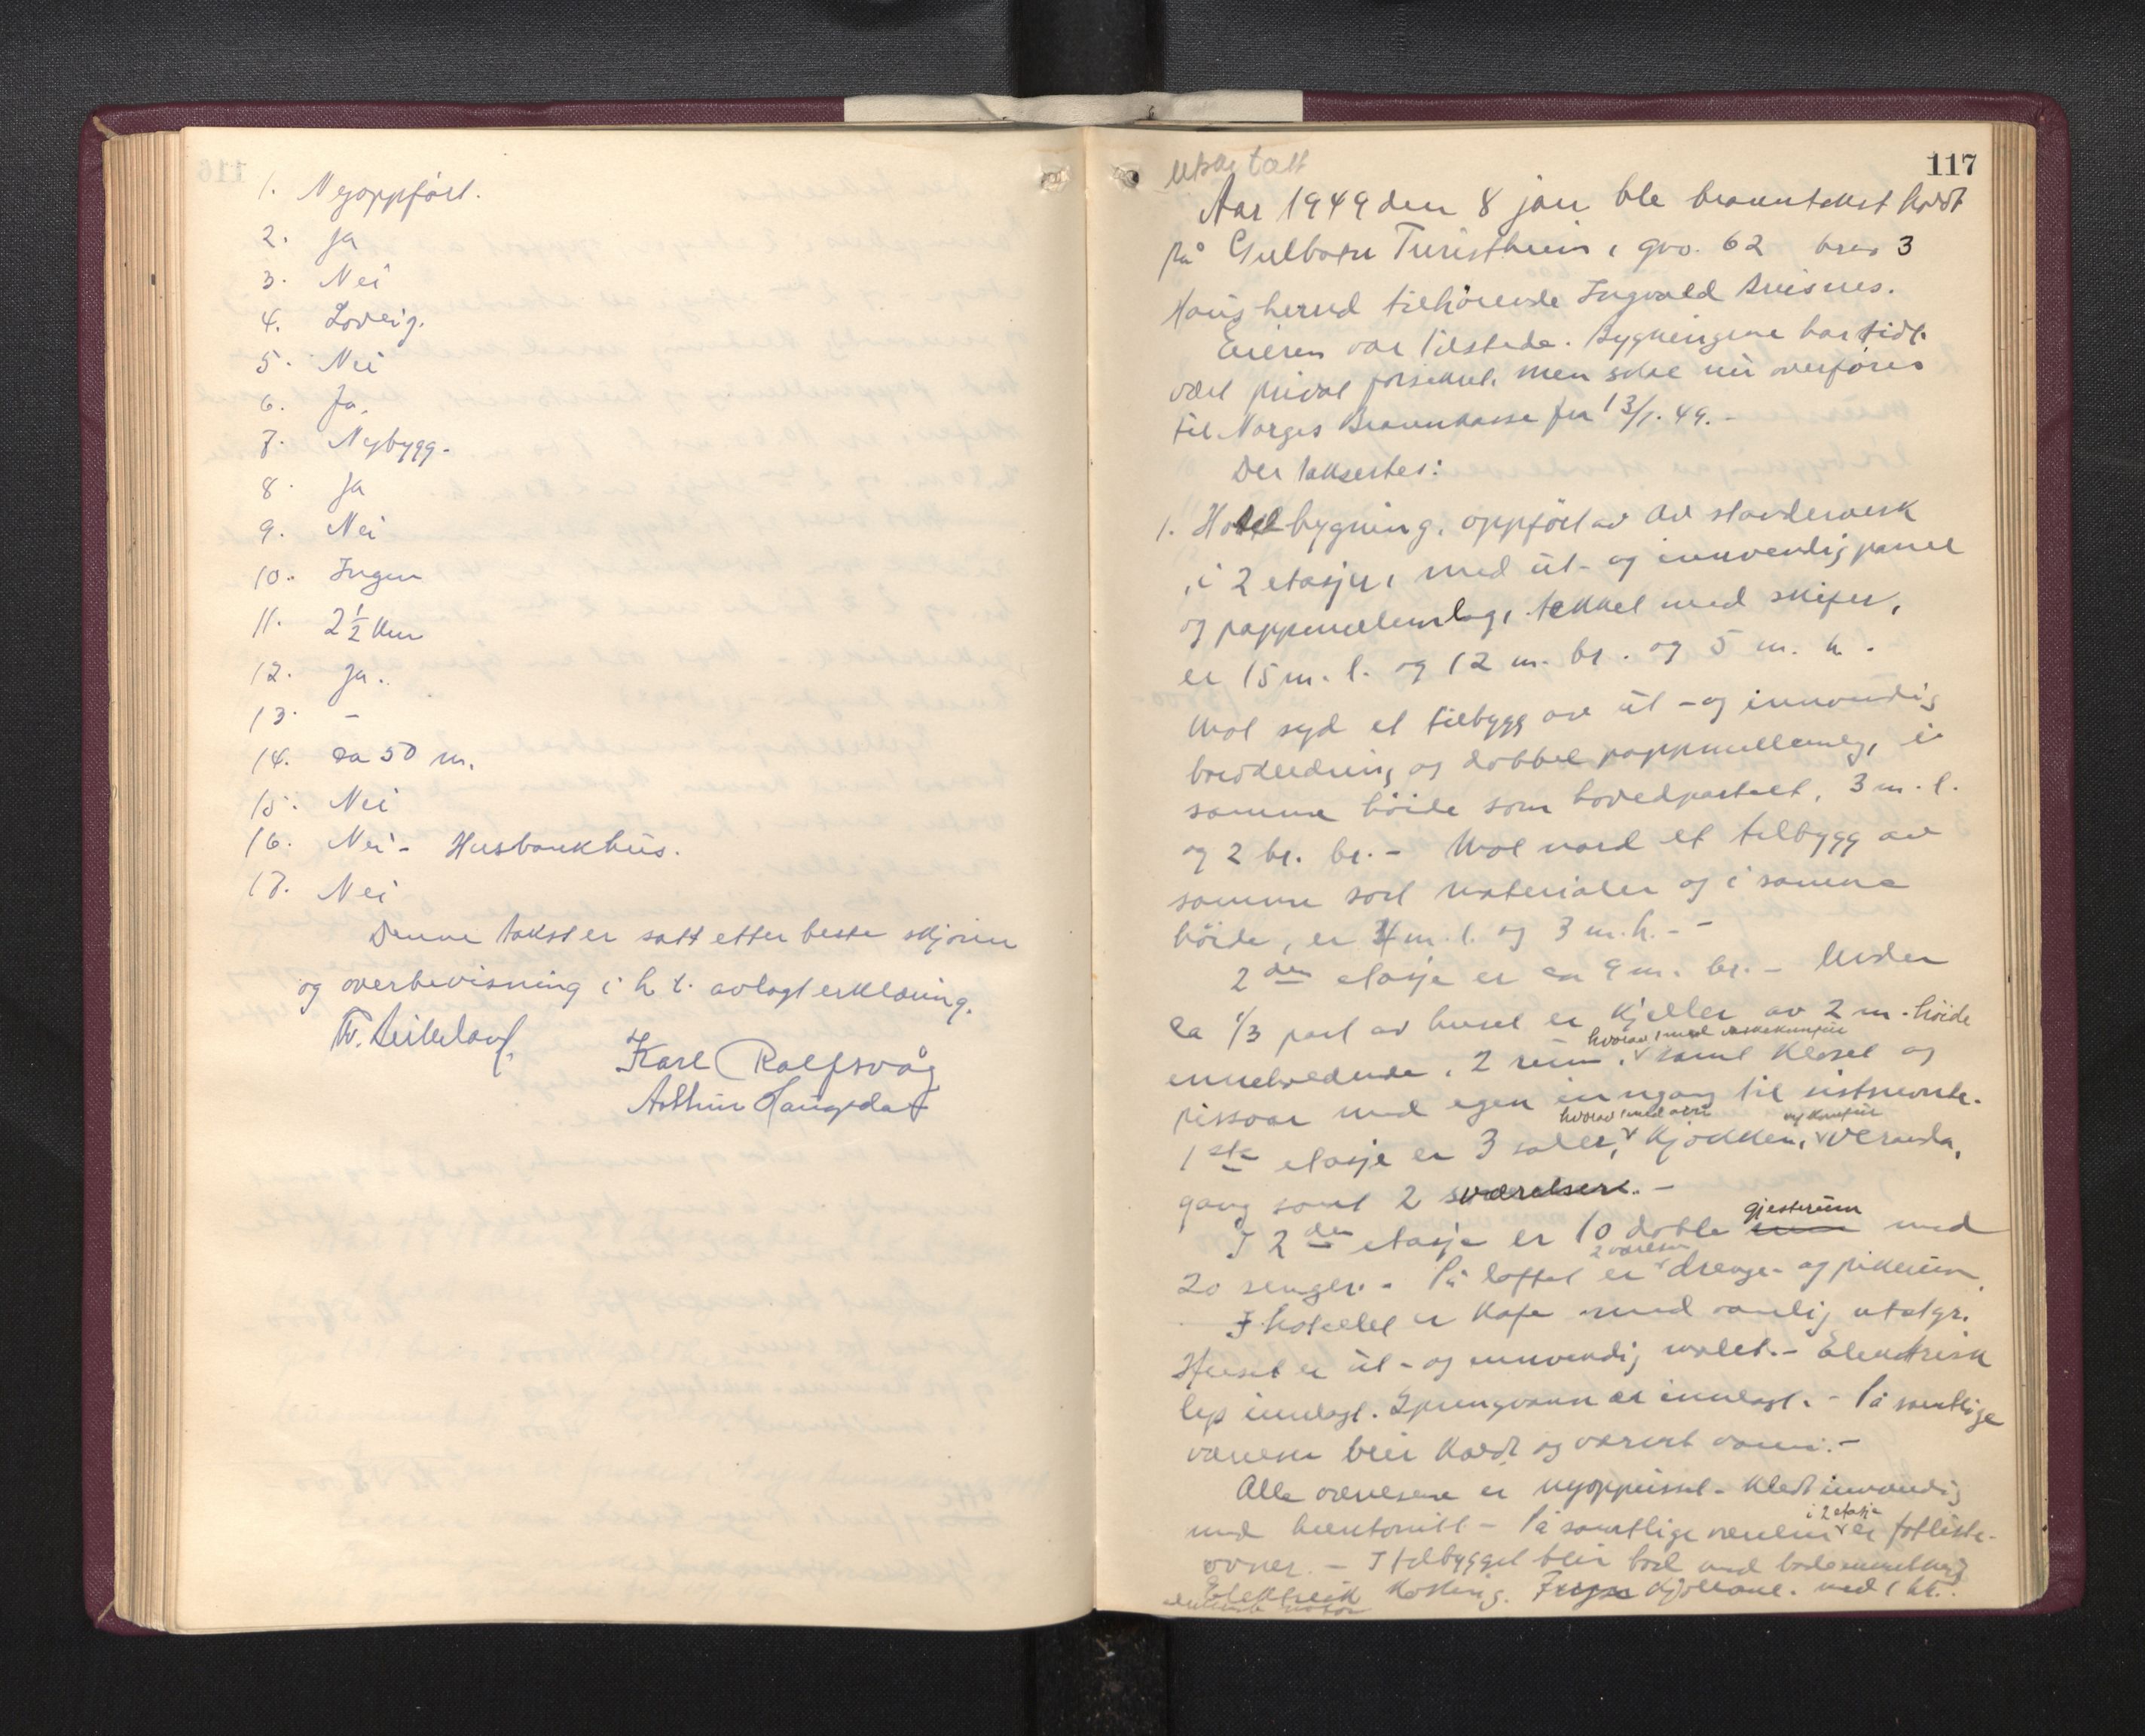 1. Nyoppført.
2. Ja
3. Nei
4. Lovlig.
5. Nei
6. Ja.
7. Nybygg.
8. Ja
9. Nei
10. Ingen
11. 2 1/2 km
12. Ja.
13. -
14. ca 50 m.
15. Nei
16. Nei - Husbankhus.
17. Nei
Denne takst er satt etter beste skjønn
og overbevisning i h.t. avlagt erklæring.
Karl Rolfsvåg
Arthur Haugsdal
117
Utskr tatt
Aar 1949 den 8 jan ble branntakst holdt
på Gulbotn Turistheim, gno. 62 brno 3
Haus herred tilhørende Ingvald
Eieren var tilstede. Bygningene har tidl.
vært privat forsikret, men skal nu overføres
til Norges Brannkasse fra 13/1. 49. -
Der taksertes:
1. Hotelbygning, oppført av av stenderverk
i 2 etasjer, med ut- og innvendig panel
og pappmellemlag, tekket med skifer,
er 15 m. l. og 12 m. br. og 5 m. h.
Mot syd et tilbygg av ut- og innvendig
bordkledning og dobbel pappmellemlag, i
samme høide som hovedpartiet, 3 m. l.
og 2 br. br. - Mot nord et tilbygg av
samme sort materialer og i samme
høide, er 4 m. l. og 3 m. h. - -
2den etasje er ca 9 m. br. - Under
ca 1/3 part av huset er kjeller av 2 m. høide
hvorav 1 med vaskekumme
inneholdende, 2 rum, samt kloset og
pissoar med egen inngang til sistnevnte.
hvorav 1 med ovn og komfur
1ste etasje er 3 saler, kjøkken, veranda,
gang samt 2 værelser. -
gjesterum
I 2den etasje er 10 doble rum med
2 værelser
20 senger. - På loftet er drenge- og pikerum.
I hotellet er kafe med vanlig utstyr.
Huset er ut- og innvendig malet. - Elektrisk
lys innlagt. Springvann er innlagt. - På samtlige
værelser blir kaldt og varmt vann. -
Alle værelsene er nyoppusset - kledt innvendig
i 2 etasje
med huntonitt - På samtlige værelser er fotliste-
ovner. - I tilbygget blir bad med badeinnretning
Elektrisk kokning. Kjøleanl. med 1 hk.
elektrisk motor